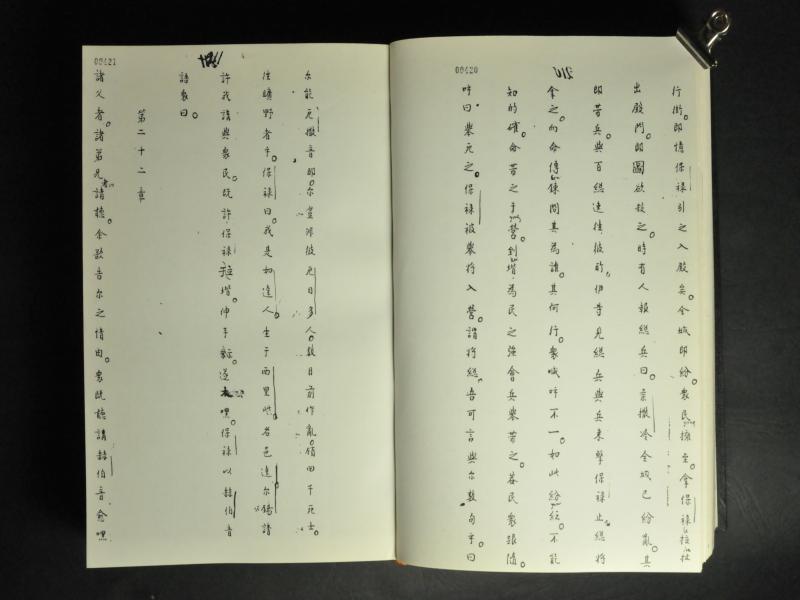 00420
行街。即情保祿引之入殿矣。全城即紛。衆民擁至。拿保祿。扯
出殿門。即圖欲殺之。時有人報總兵曰。柔撒冷全城已紛亂。其
即帶兵與百總速往彼所。伊等見總兵與兵來擊保祿止。總將
拿之。而命傳鍊問其為誰。其何行。衆喊咋不一。如此紛紜。不能
知的確。命帶之于營。到堦。為民之強會兵舉帶之。盖民衆跟隨。
咋曰。舉死之。保祿被舉將入營。謂將總。吾可言與尔數句乎。曰
00421
尔能厄撒音。即尔豈非彼厄日多人。數日前作亂。領四千死士。
徃曠野者乎。保祿曰。我是如達人。生于西里。若邑達尔。請
許我講與衆民。既許。保祿堦。伸手。嘿。保祿以赫伯音
語衆曰。
第二十二章
諸父者。諸弟兄者。請聽。余欲告尔之情由。衆既聽講赫伯音愈嘿